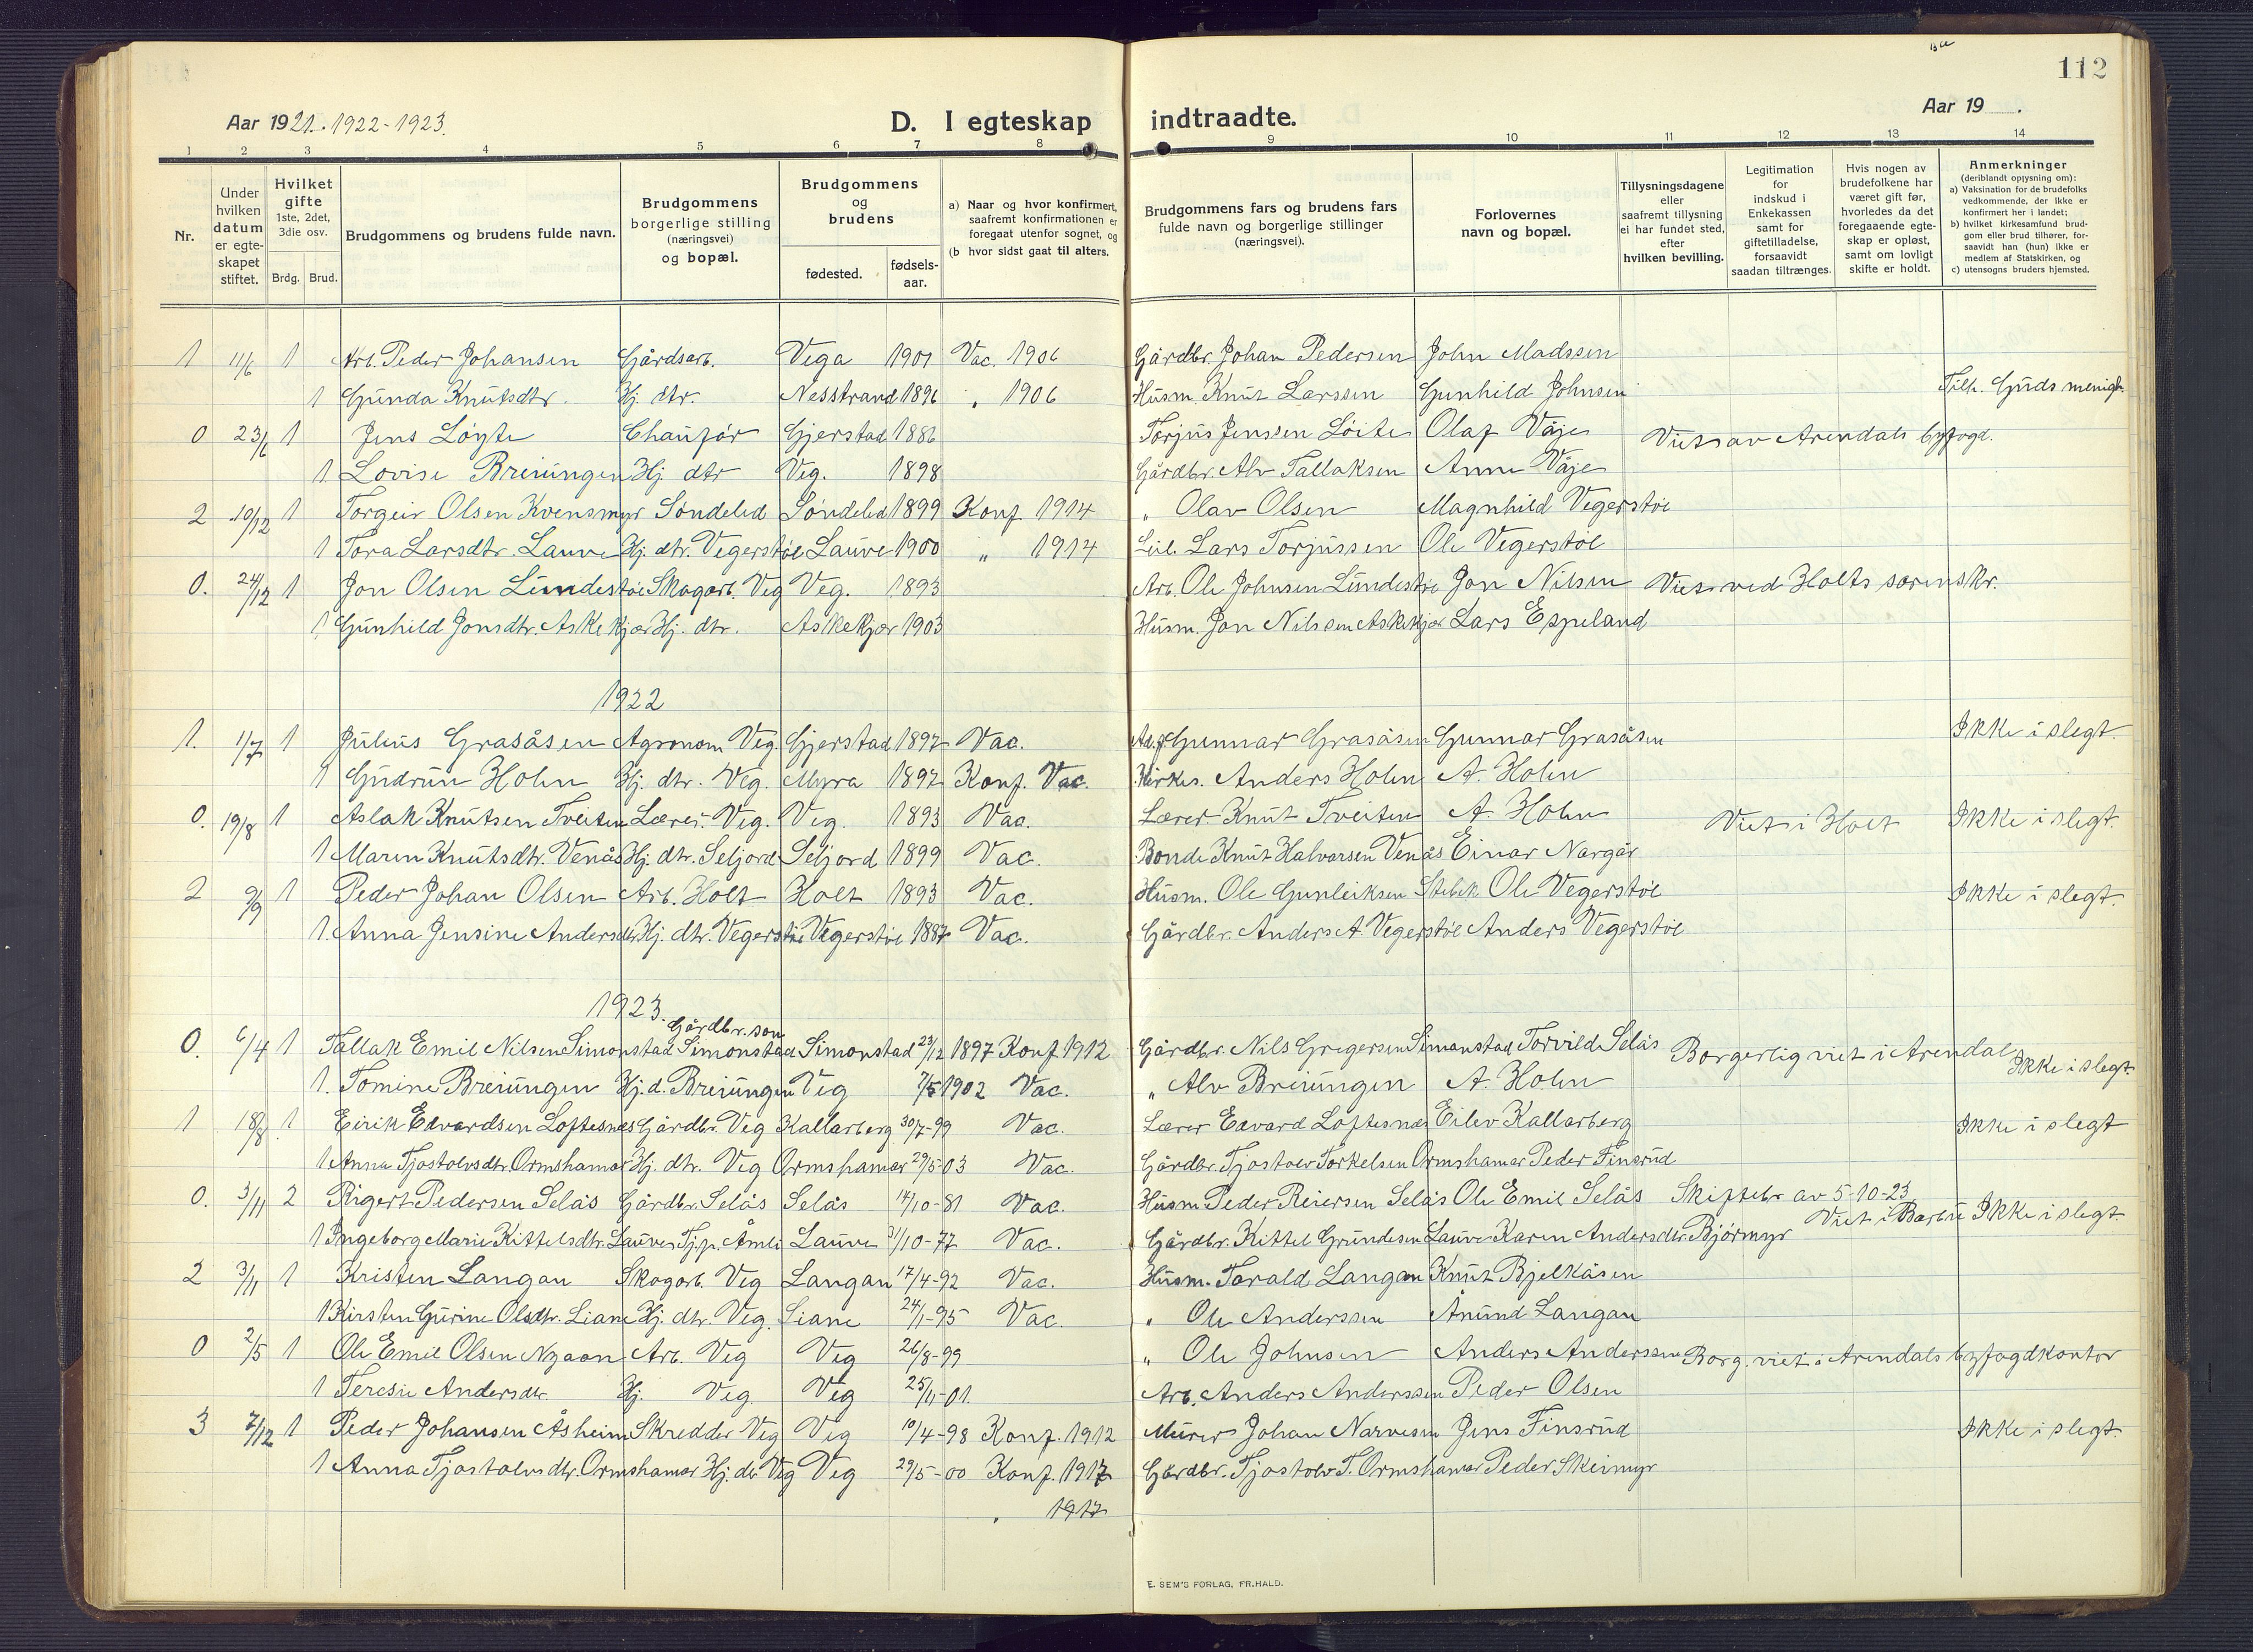 112
Aar 1921. 1922-1923.
D. I egteskap indtraadte.
Aar 19 .
1 2 3 4 5 6 7 8 9 10 11 12 13 14
Nr.
Under hvilken datum er egteskapet stiftet.
Hvilket gifte 1ste, 2det, 3die osv.
Brdg. Brud.
Brudgommens og brudens fulde navn.
Brudgommens borgerlige stilling (næringsvei) og bopæl.
Brudgommens og brudens
fødested. fødselsaar.
a) Naar og hvor konfirmert, saafremt konfirmationen er foregaat utenfor sognet, og
(b hvor sidst gaat til alters.
Brudgommens fars og brudens fars fulde navn og borgerlige stillinger (næringsvei).
Forlovernes navn og bopæl.
Tillysningsdagene eller saafremt tillysning ei har fundet sted, efter hvilken bevilling.
Legitimation for indskud i Enkekassen samt for giftetilladelse, forsaavidt saadan tiltrænges.
Hvis nogen av brudefolkene har været gift før, hvorledes da det foregaaende egteskap er opløst, samt om lovligt skifte er holdt.
Anmerkninger (deriblandt opiysning om):
a) Vaksination for de brudefolks vedkommende, der ikke er konfirmert her i landet;
b) hvilket kirkesamfund brudgom eller brud tilhører, forsaavidt han (hun) ikke er medlem af Statskirken, og
c) utensogns bruders hjemsted.
1 11/6 1 Arb. Peder Johansen Gårdsarb. Vega 1901 Vac. 1906 Gårdbr. Johan Pedersen John Madssen
1 Gunda Knutsdtr. Hj. dtr. Nesstrand 1896 " 1906 Husm. Knut Larssen Gunhild Johnsen Tilh. Guds menigh.
0 23/6 1 Jens Løyte Chaufør Gjerstad 1886 Torjus Jenssen Løite Olaf Våje Viet av Arendals byfogd.
1 Lovise Breiungen Hj. dtr Veg. 1898 Gårdbr. Alv Tallaksen Anne Våje
2 10/12 1 Torgeir Olsen Kvensmyr Søndeled Søndeled 1899 Konf 1914 " Olav Olsen Magnhild Vegerstøl
1 Tora Larsdtr. Lauve Hj. dtr. Vegerstøl Lauve 1900 " 1914 Leil. Lars Torjussen Ole Vegerstøl
0. 24/12 1 Jon Olsen Lundestøl Skogarb. Veg Veg. 1893 Arb. Ole Johnsen Lundestøl Jon Nilsen Viet ved Holts sorenskr.
1 Gunhild Jonsdtr. Askekjær Hj. dtr. Askekjær 1903 Husm. Jon Nilssen Askekjær Lars Espeland
1922
1. 1/7 1 Julius Grasåsen Agronom Veg. Gjerstad 1897 Vac. Gunnar Grasåsen Gunnar Grasåsen Ikke i slegt.
1 Gudrun Holm Hj. dtr. Veg. Myra 1897 Konf. Vac. Kirkes. Anders Holm A. Holm
0. 19/8 1 Aslak Knutsen Tveiten Lærer. Veg. Veg. 1893 Vac. Lærer Knut Tveiten A. Holm Viet i Holt Ikke i slegt.
1 Maren Knutsdtr. Venås Hj. dtr. Seljord Seljord 1899 Vac. Bonde Knut Halvorsen Venås Einar Norgår
2 9/9 1 Peder Johan Olsen Arb. Holt Holt 1893 Vac. Husm. Ole Gunleiksen Ole Vegerstøl Ikke i slegt.
1. Anna Jensine Andersdtr Hj. dtr. Vegerstøl Vegerstøl 1887 Vac. Gårdbr. Anders A. Vegerstøl Anders Vegerstøl
1923.
Gårdbr. søn
0. 6/4 1 Tallak Emil Nilsen Simonstad Simonstad Simonstad 23/12 1897 Konf 1912 Gårdbr. Nils Gregersen Simonstad Torvild Selås Borgerlig viet i Arendal Ikke i slegt.
1. Tomine Breiungen Hj. d. Breiungen Veg 7/5 1902 Vac. " Alv Breiungen A. Holm
1 18/8 1 Eirik Edvardsen Loftesnes Gårdbr. Veg Kallarberg 30/7-99 Vac. Lærer Edvard Loftesnes Eilev Kallarberg Ikke i slegt
1 Anna Tjostolvsdtr. Ormshamar Hj. dtr. Veg Ormshamar 29/5-03 Vac. Gårdbr. Tjostolv Torkelsen Ormshamar Peder Finsrud
0. 3/11 2 Rigert Pedersen Selås Gårdbr. Selås Selås 14/10-81 Vac. Husm Peder Reiersen Selås Ole Emil Selås Skiftebr av 5-10-23
1 Ingeborg Marie Kittelsdtr. Lauve Tj.p. Åmli Lauve 31/10-77 Vac. Gårdbr. Kittel Grundesen Lauve Karen Andersdtr. Bjørmyr Viet i Barbu Ikke i slegt.
2 3/11 1 Kristen Langan Skogarb. Veg Langan 17/4-92 Vac. Husm. Torald Langan Knut Bjelkåsen
1 Kirsten Gurine Olsdtr. Liane Hj. dtr. Veg. Liane 24/1-95 Vac. " Ole Anderssen Ånund Langan
0 2/5 1 Ole Emil Olsen Nygaon Arb. Veg Veg 26/8-99 " Ole Johnsen Anders Anderssen Borg. viet i Arendals byfogdkontor
1 Teresie Andersdtr. Hj. Veg. Veg 25/11-01. Arb. Anders Anderssen Peder Olsen
3 7/12 1 Peder Johansen Åsheim Skredder Veg Veg 10/4-98 Konf. 1912 Murer Johan Narvesen Jens Finsrud Ikke i slegt.
1 Anna Tjostolvsdtr. Ormshamar Hj. dtr Veg Veg 29/5-00 Konf. 1917 Gårdbr. Tjostolv T. Ormshamar Peder Skeimyr
" 1917
E. SEM'S FORLAG, FR.HALD.